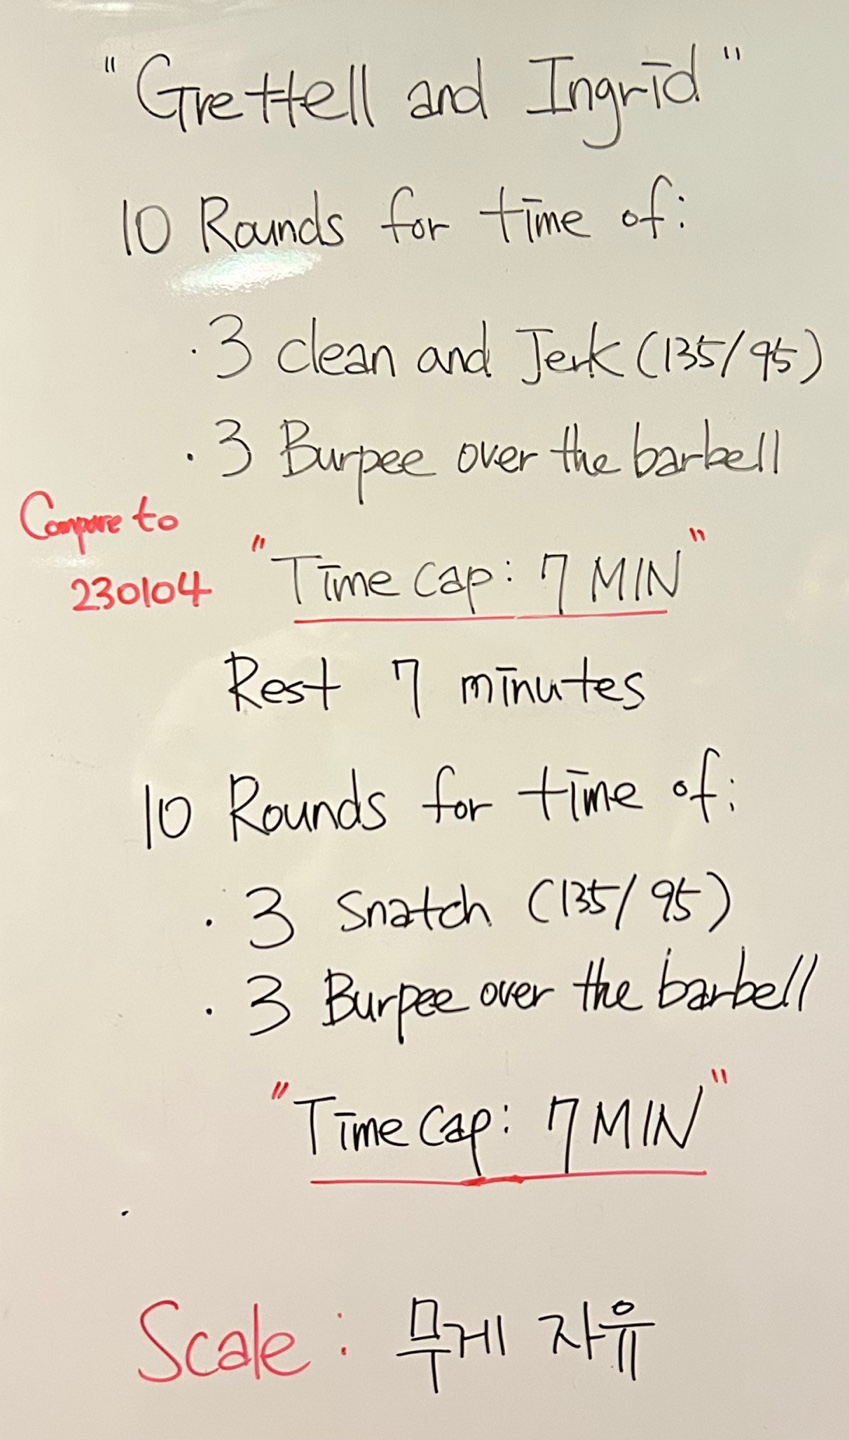 "Grettell and Ingrid"
10 Rounds for time of:
· 3 clean and Jerk (135/95)
· 3 Burpee over the barbell
Compare to
230104
"Time cap: 7 MIN"
Rest 7 minutes
10 Rounds for time of:
· 3 Snatch (135/95)
· 3 Burpee over the barbell
"Time cap: 7 MIN"
Scale: 무게 자유